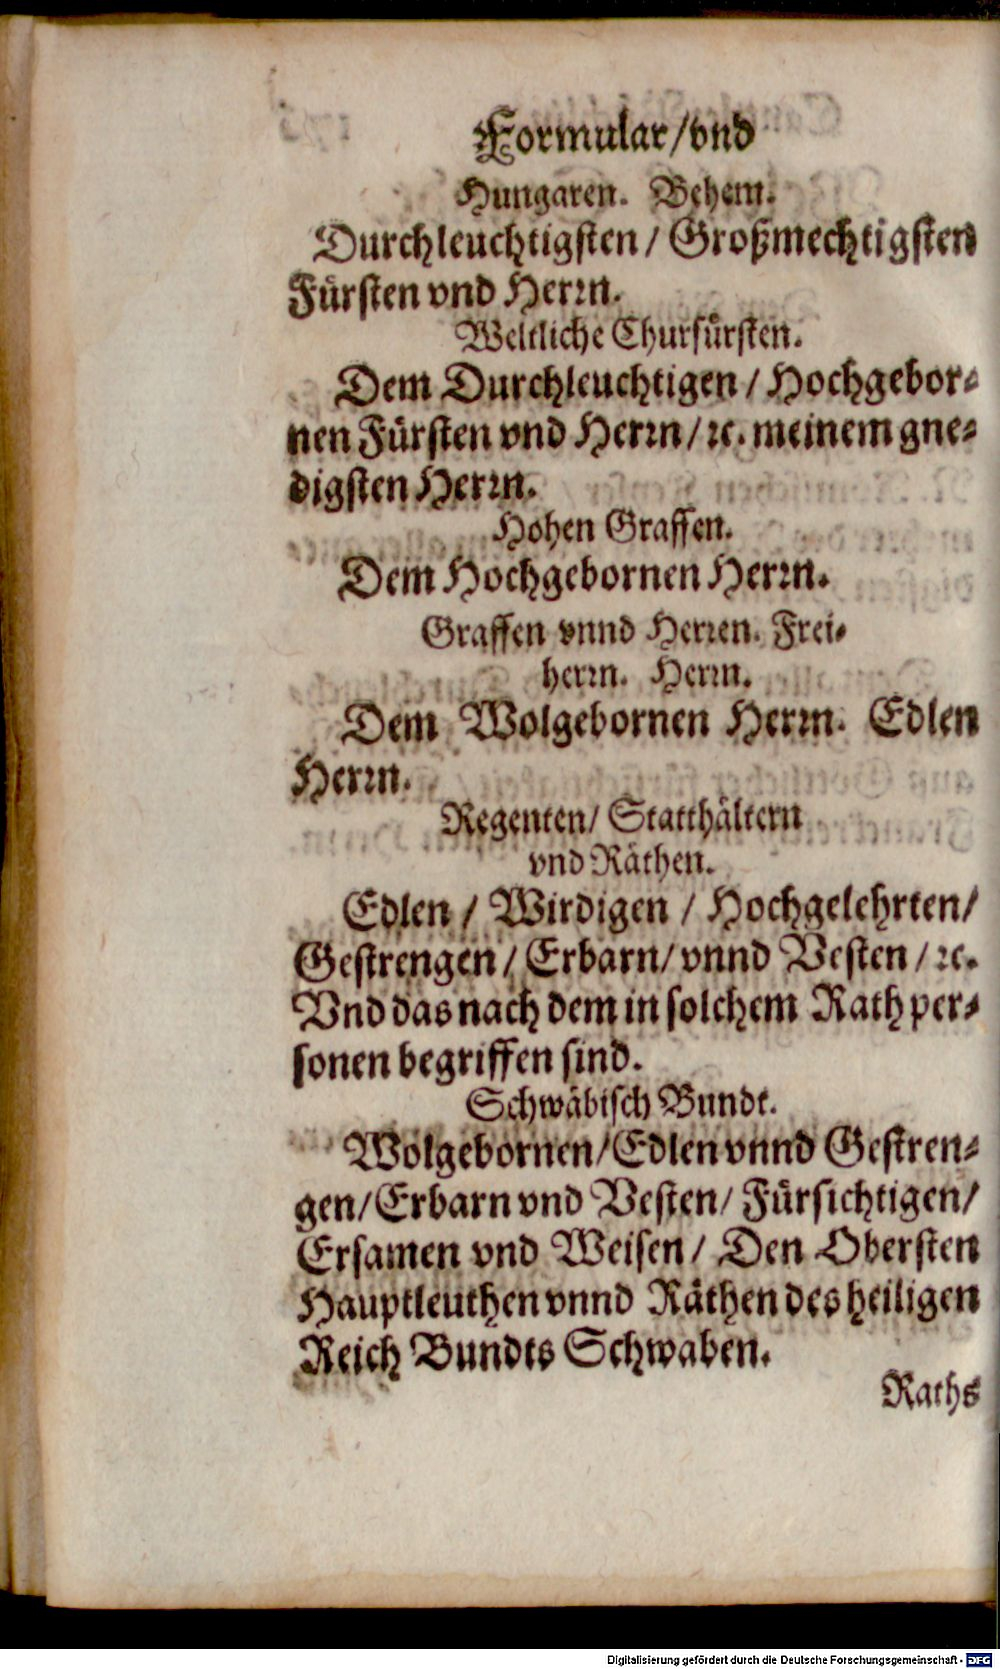 Formular/vnd
Hungaren. Behem.
Durchleuchtigsten/ Großmechtigsten
Fürsten vnd Herrn.
Weltliche Churfürsten.
Dem Durchleuchtigen/ Hochgebor-
nen Fürsten vnd Herrn/ ꝛc. meinem gne-
digsten Herrn.
Hohen Graffen.
Dem Hochgebornen Herrn.
Graffen vnnd Herren. Frei-
herrn. Herrn.
Dem Wolgebornen Herrn. Edlen
Herrn.
Regenten/ Statthältern
vnd Räthen.
Edlen / Wirdigen / Hochgelehrten/
Gestrengen/ Erbarn/ vnnd Vesten / ꝛc.
Vnd das nach dem in solchem Rath per-
sonen begriffen sind.
Schwäbisch Bundt.
Wolgebornen/Edlen vnnd Gestren-
gen/Erbarn vnd Vesten/ Fürsichtigen/
Ersamen vnd Weisen/ Den Obersten
Hauptleuthen vnnd Räthen des heiligen
Reich Bundts Schwaben.
Raths
Digitalisierung gefördert durch die Deutsche Forschungsgemeinschaft - DFG